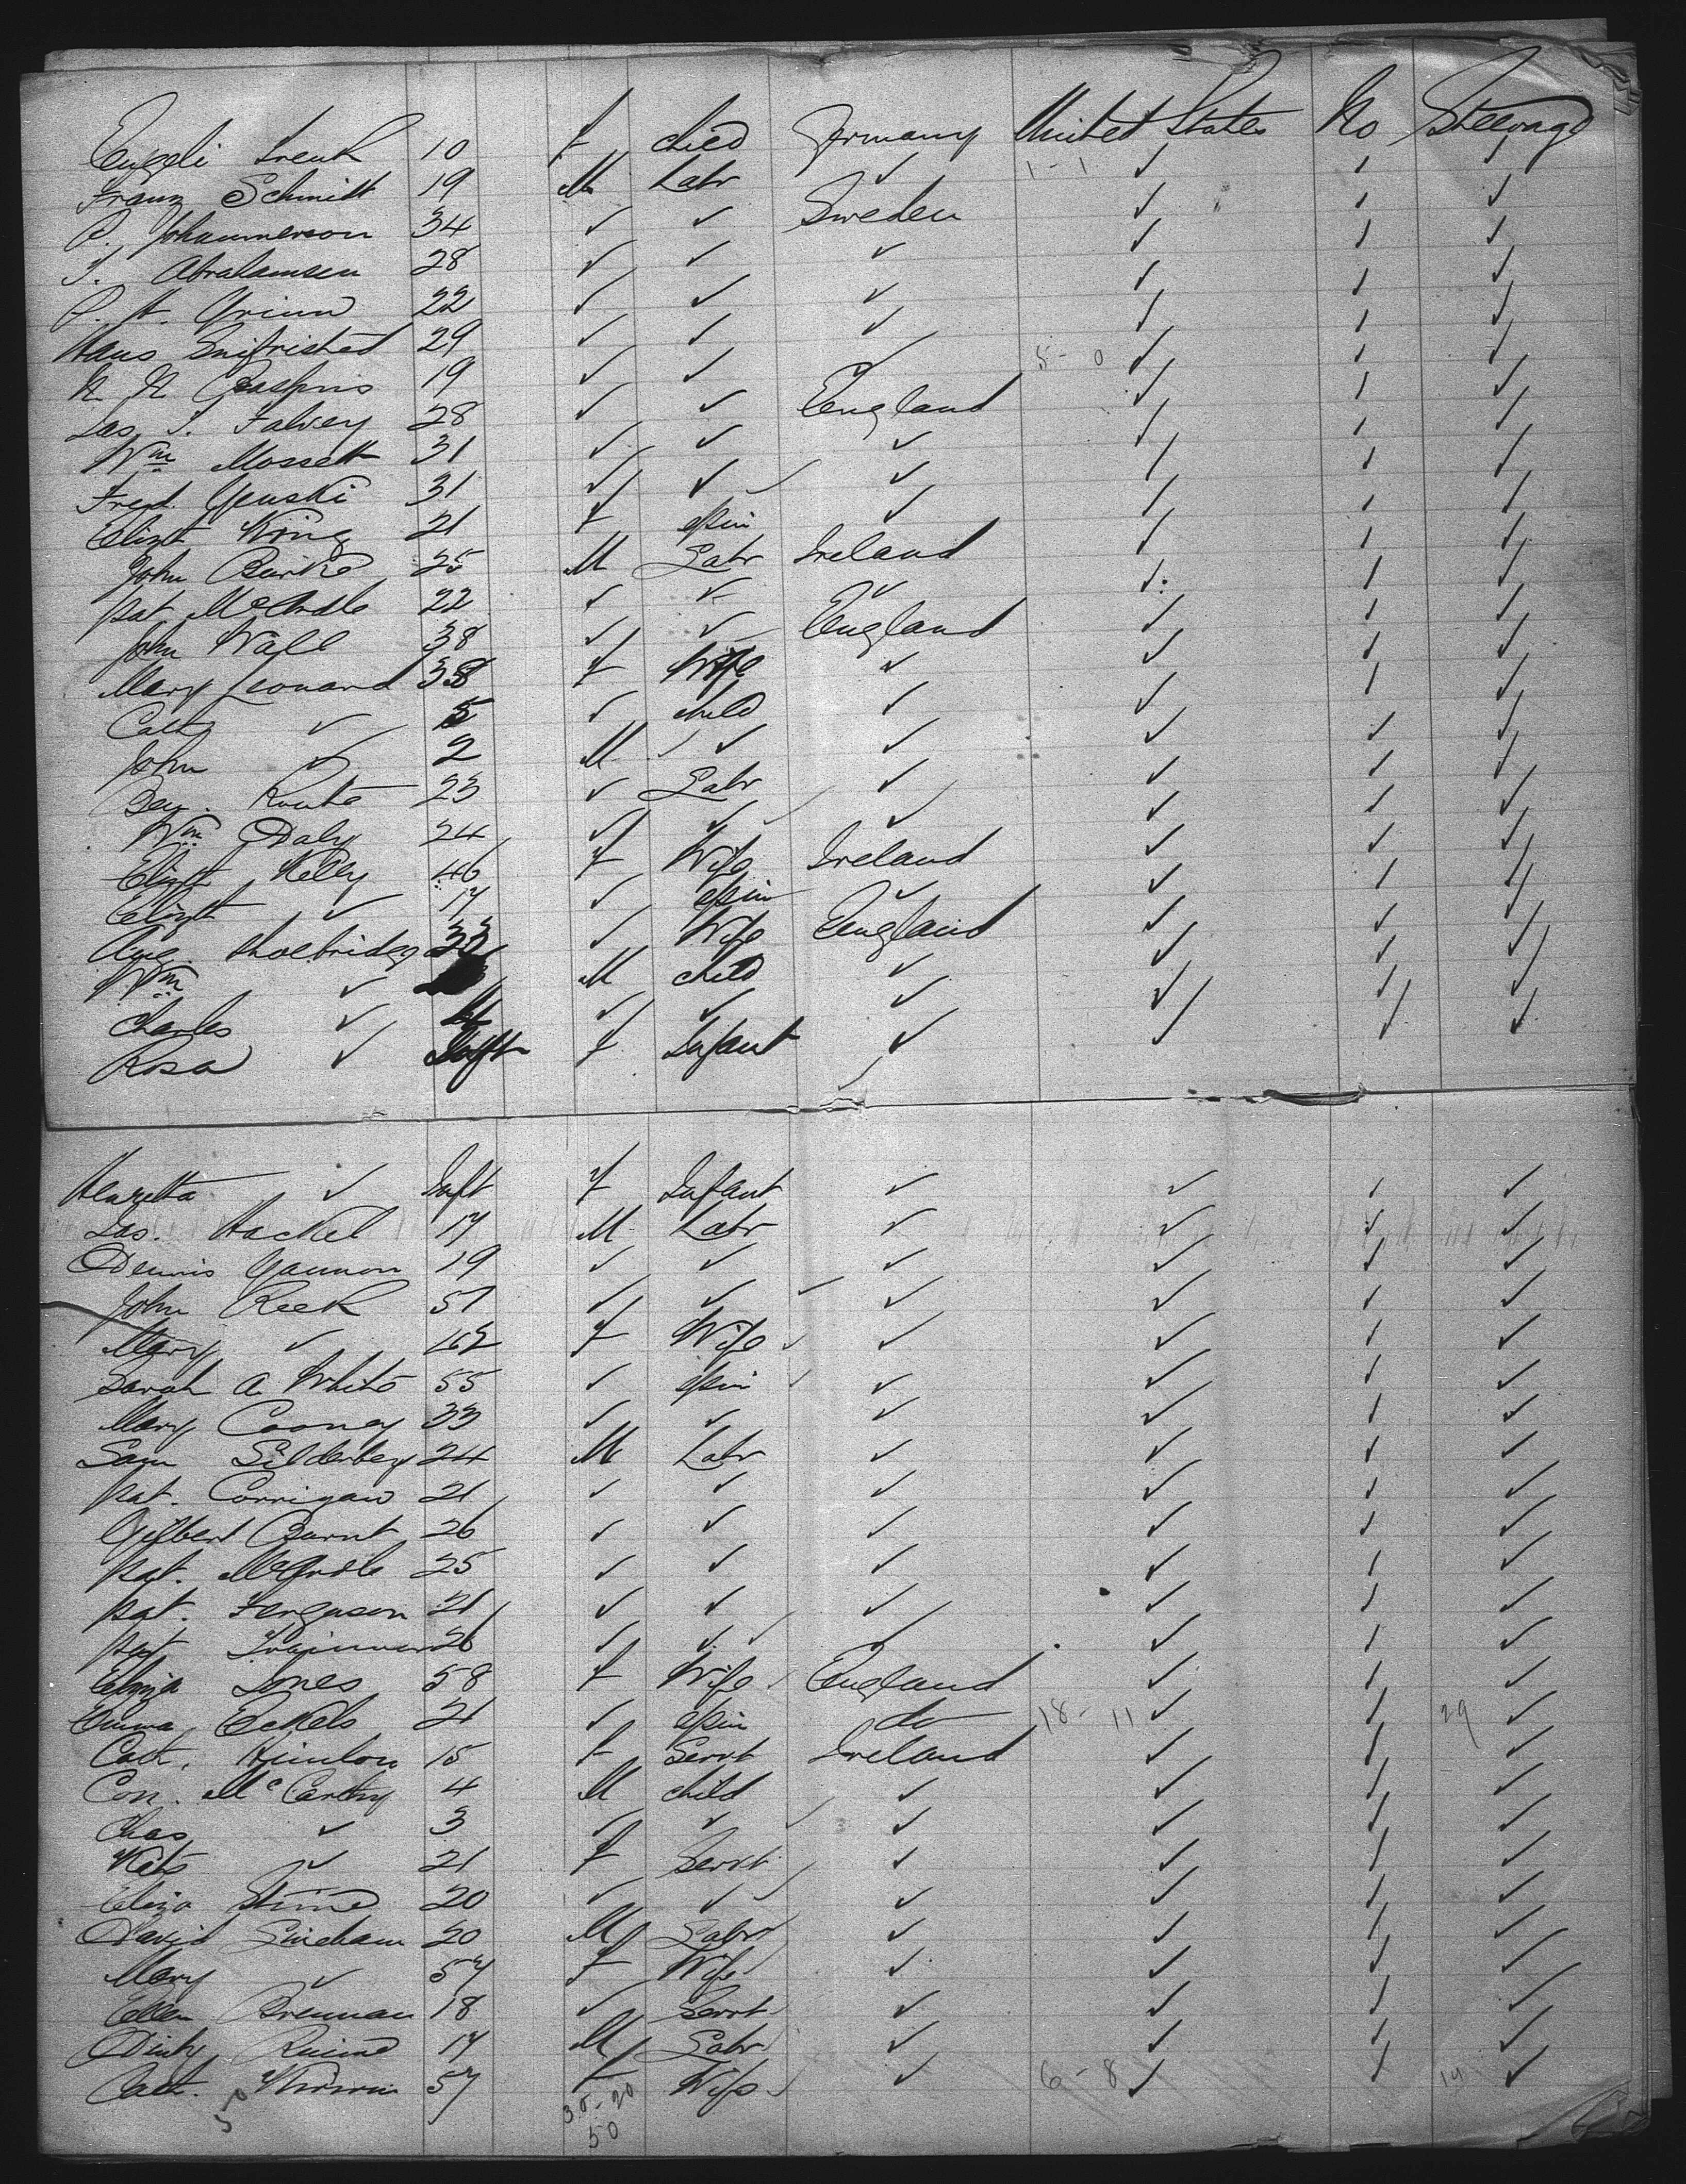 10 f child Germany United States No Steerage
Franz Schmidt 19 M Labr ✓ 1-1 ✓ ✓ ✓
34 ✓ ✓ Sweden ✓ ✓ ✓
Abrahamsen 28 ✓ ✓ ✓ ✓ ✓ ✓
22 ✓ ✓ ✓ ✓ ✓ ✓
Hans 29 ✓ ✓ ✓ ✓ ✓ ✓
19 ✓ ✓ ✓ 5-0 ✓ ✓ ✓
Jas. J. Falvey 28 ✓ ✓ England ✓ ✓ ✓
Wm Mossett 31 ✓ ✓ ✓ ✓ ✓ ✓
Fred. 31 ✓ ✓ ✓ ✓ ✓ ✓
Elizt King 21 f Spin ✓ ✓ ✓ ✓
John Burke 25 M Labr Ireland ✓ ✓ ✓
Pat McArdle 22 ✓ ✓ ✓ ✓ ✓ ✓
John Wall 38 ✓ ✓ England ✓ ✓ ✓
Mary Leonard 38 f Wife ✓ ✓ ✓ ✓
Cath ✓ 5 ✓ child ✓ ✓ ✓ ✓
John ✓ 2 M ✓ ✓ ✓ ✓ ✓
23 ✓ Labr ✓ ✓ ✓ ✓
Wm Daly 24 ✓ ✓ ✓ ✓ ✓ ✓
Elizt Kelly 46 f Wife Ireland ✓ ✓ ✓
Elizt ✓ 17 ✓ Spin ✓ ✓ ✓ ✓
Shoebridge 33 ✓ Wife England ✓ ✓ ✓
Wm ✓ M child ✓ ✓ ✓ ✓
Charles ✓ 4 ✓ ✓ ✓ ✓ ✓ ✓
Rosa ✓ Inft f Infant ✓ ✓ ✓ ✓
Henretta ✓ Inft f Infant ✓ ✓ ✓ ✓
Jas. Hackel 17 M Labr ✓ ✓ ✓ ✓
Dennis Gannon 19 ✓ ✓ ✓ ✓ ✓ ✓
John Reek 57 ✓ ✓ ✓ ✓ ✓ ✓
Mary ✓ f Wife ✓ ✓ ✓ ✓
Sarah A White 55 ✓ Spin ✓ ✓ ✓ ✓
Mary Cooney 33 ✓ ✓ ✓ ✓ ✓ ✓
Sam Silderberg 24 M Labr ✓ ✓ ✓ ✓
Pat. Corrigan 21 ✓ ✓ ✓ ✓ ✓ ✓
Gilbert Burnt 26 ✓ ✓ ✓ ✓ ✓ ✓
Pat. McArdle 25 ✓ ✓ ✓ ✓ ✓ ✓
Pat. Ferguson 21 ✓ ✓ ✓ ✓ ✓ ✓
Pat 26 ✓ ✓ ✓ ✓ ✓ ✓
Eliza Jones 58 f Wife England ✓ ✓ ✓
Emma Eckels 21 ✓ Spin do 18-11 ✓ ✓ 29 ✓
Cath. 15 f Servt Ireland ✓ ✓ ✓
Con. McCarthy 4 M child ✓ ✓ ✓ ✓
Chas ✓ 3 ✓ ✓ ✓ ✓ ✓ ✓
Kate ✓ 21 f Servt ✓ ✓ ✓ ✓
Eliza 20 ✓ ✓ ✓ ✓ ✓ ✓
David 20 M Labr ✓ ✓ ✓ ✓
Mary ✓ 57 f Wife ✓ ✓ ✓ ✓
Ellen Brennan 18 ✓ Servt ✓ ✓ ✓ ✓
17 M Labr ✓ ✓ ✓ ✓
Cath. 57 f Wife ✓ 6-8 ✓ ✓ 14 ✓
50 30-20
50